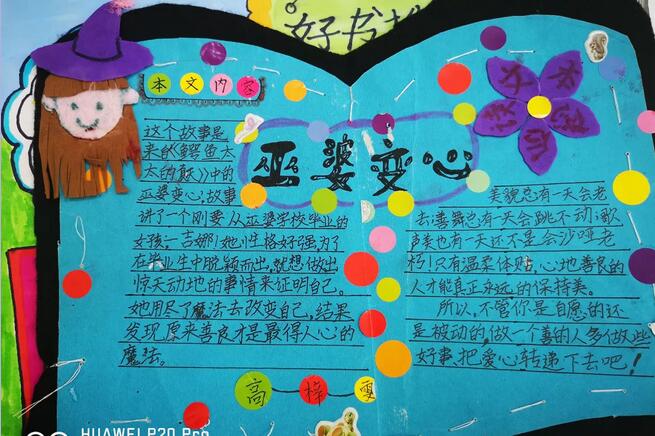 好书推
本文内容
巫婆变心
这个故事是
来自《鳄鱼太
太的厨》中的
巫婆变心，故事
讲了一个刚要从巫婆学校毕业的
女孩—吉娜！她小性格好强为了
在毕业生中脱颖而出，就想做出
惊天动地的事情来证明自己。
她用尽了魔法去改变自己，结果
发现原来善良才是最得人心的
魔法。
美貌总有一天会老
去；善舞总有一天会跳不动；歌
声美也有一天还不是会沙哑老
朽！只有温柔体贴、心地善良的
人才能真正永远的保持美。
所以，不管你是自愿的还
是被动的，做一个善的人多做些
好事、把爱心转递下去吧！
高梓雯
HUAWEI P20 Pro